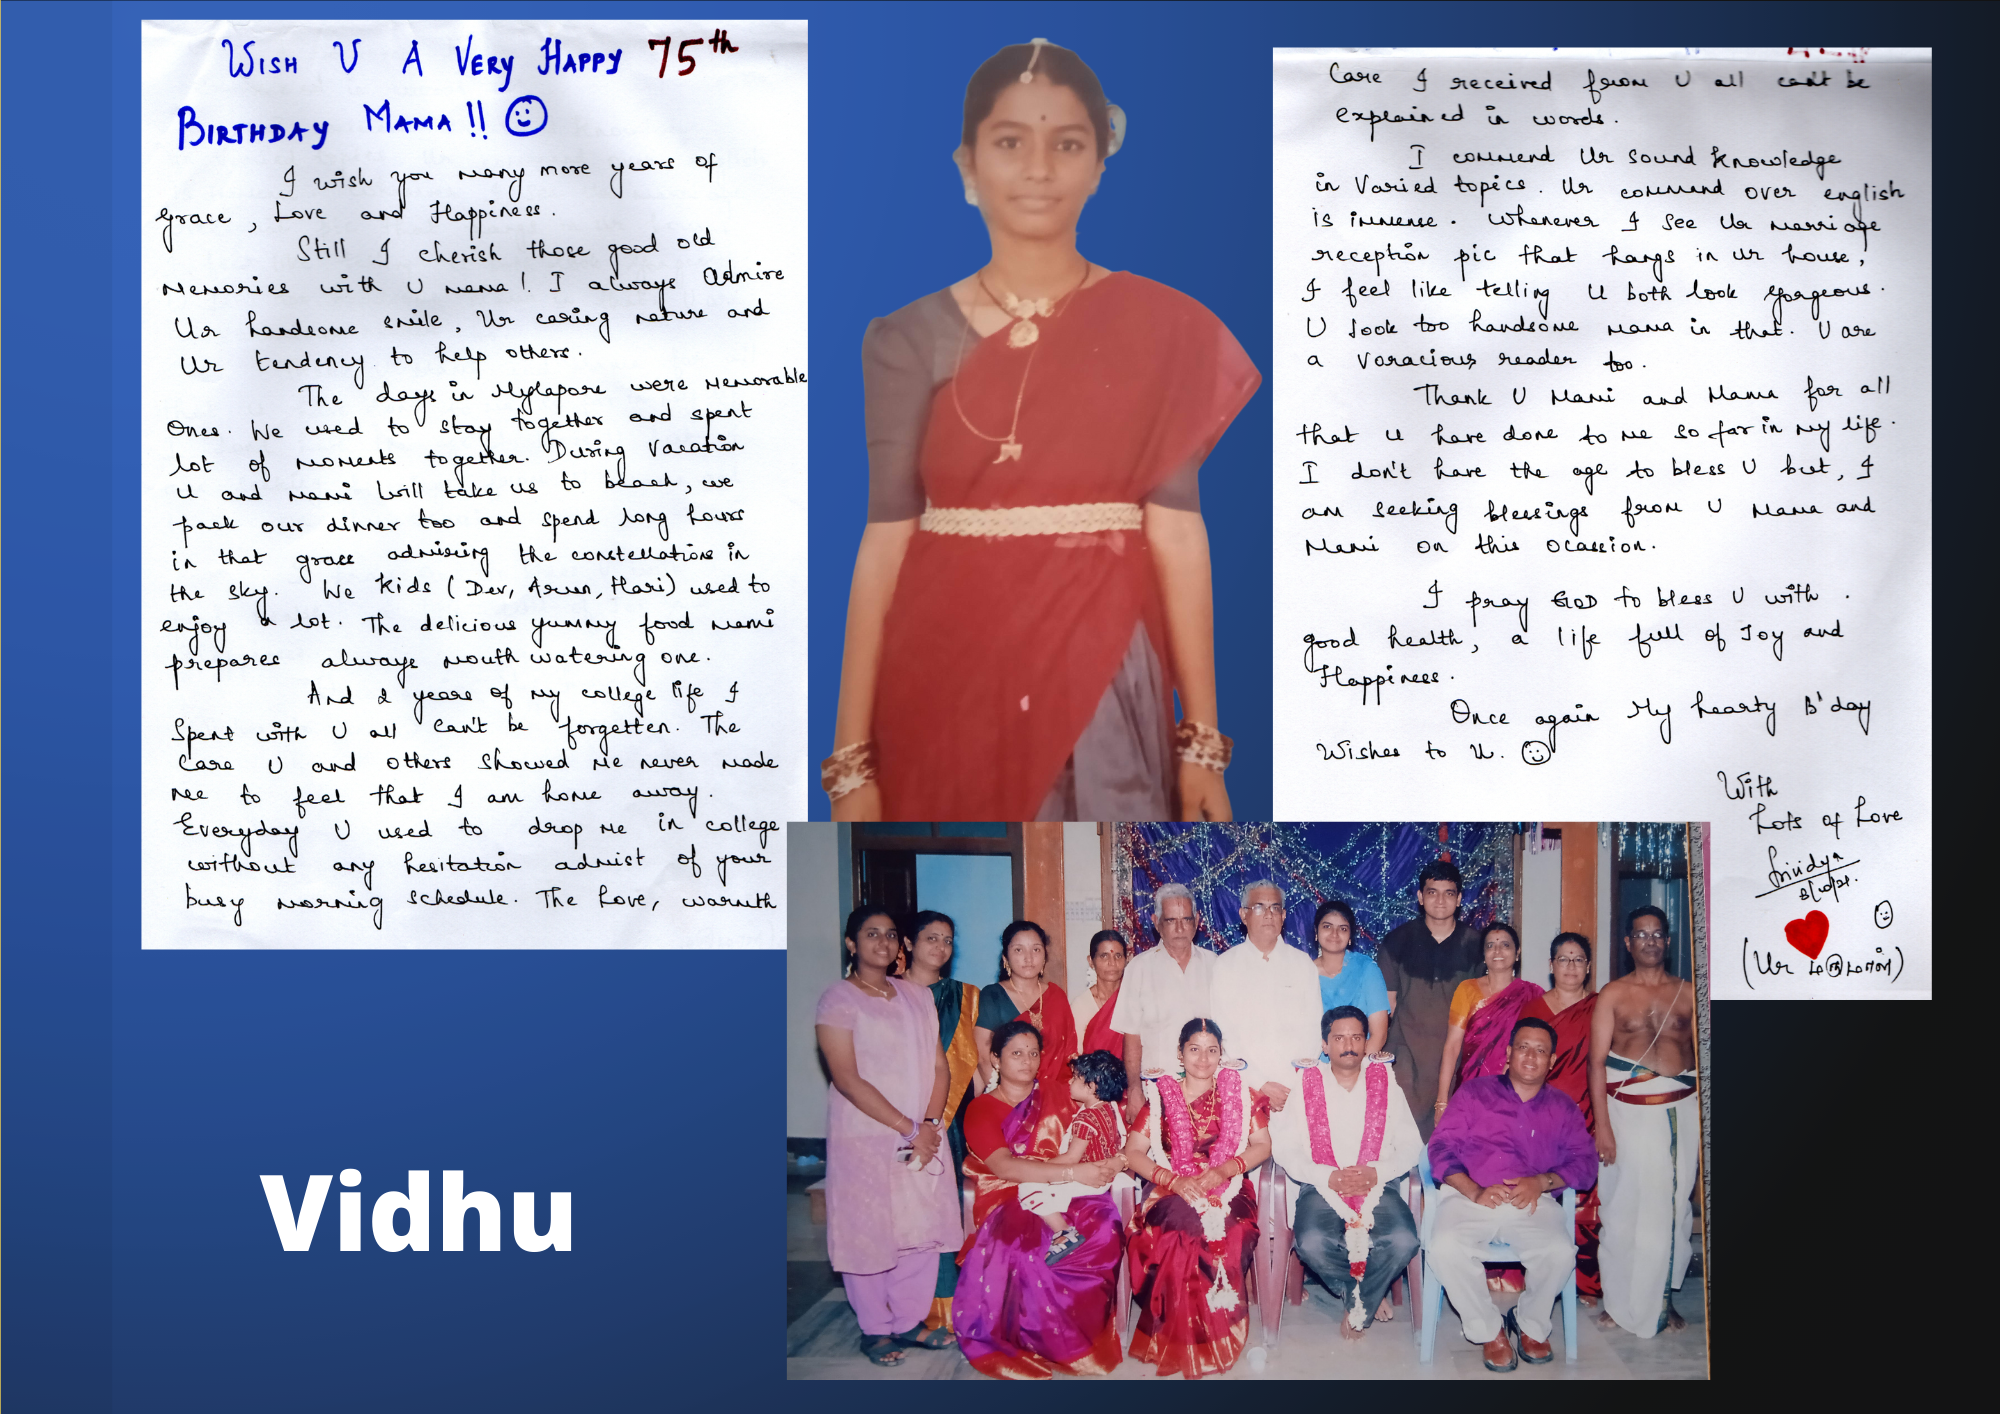 WISH U A VERY HAPPY 75th
BIRTHDAY MAMA!!
I wish you many more years of
grace, Love and Happiness.
Still I cherish those good old
Memories with U mama! I always Admire
Ur handsome smile, Ur caring nature and
Ur tendency to help others.
The days in Mylapore were memorable
Ones. We used to stay together and spent
lot of moments together. During Vacation
U and mami will take us to beach, we
pack our dinner too and spend long hours
in that grass admiring the constellations in
the sky. We kids (Dev, Arun, Hari) used to
enjoy a lot. The delicious yummy food mami
prepares always mouth watering one.
And 2 years of my college life I
Spent with U all can't be forgetten. The
Care U and others showed me never made
me to feel that I am home away.
Everyday U used to drop me in college
without any hesitation admist of your
busy morning schedule. The Love, warmth
Care I received from U all can't be
explained in words.
I commend Ur sound knowledge
in Varied topics. Ur command over english
is immense. Whenever I see Ur marriage
reception pic that hangs in Ur house,
I feel like telling U both look gorgeous.
U look too handsome mama in that. U are
a voracious reader too.
Thank U Mami and Mama for all
that u have done to me so far in my life.
I don't have the age to bless U but, I
am seeking blessings from U Mama and
Mami on this ocassion.
I pray GOD to bless U with
good health, a life full of Joy and
Happiness.
Once again My hearty B'day
Wishes to U.
With
Lots of Love
Srividya
(Ur மருமாள்)
Vidhu